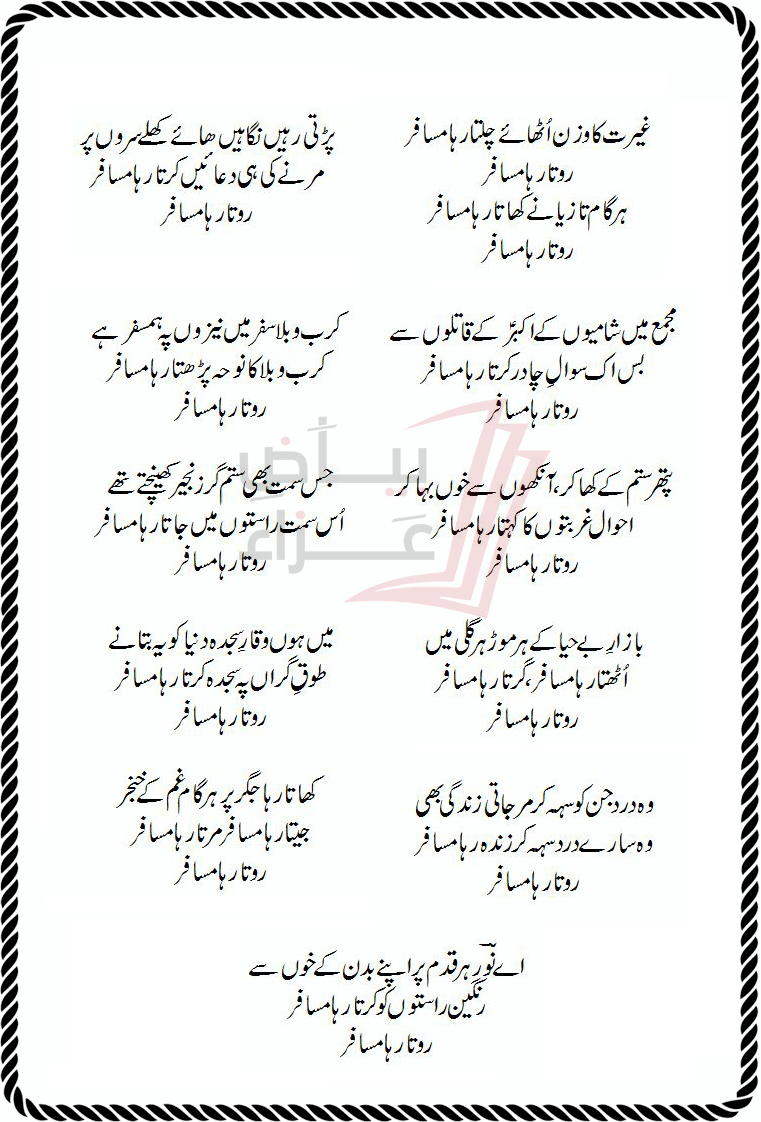 غیرت کا وزن اُٹھائے چلتا رہا مسافر
روتا رہا مسافر
ہر گام تازیانے کھاتا رہا مسافر
روتا رہا مسافر
پڑتی رہیں نگاہیں ھائے کھلے سروں پر
مرنے کی ہی دعائیں کرتا رہا مسافر
روتا رہا مسافر
مجمع میں شامیوں کے اکبرؑ کے قاتلوں سے
بس اک سوالِ چادر کرتا رہا مسافر
روتا رہا مسافر
کرب و بلا سفر میں نیزوں پہ ہمسفر ہے
کرب و بلا کا نوحہ پڑھتا رہا مسافر
روتا رہا مسافر
پتھر ستم کے کھا کر، آنکھوں سے خوں بہا کر
احوال غربتوں کا کہتا رہا مسافر
روتا رہا مسافر
جس سمت بھی ستم گر زنجیر کھینچتے تھے
اُس سمت راستوں میں جاتا رہا مسافر
روتا رہا مسافر
بازارِ بے حیا کے ہر موڑ ہر گلی میں
اُٹھتا رہا مسافر، گرتا رہا مسافر
روتا رہا مسافر
میں ہوں وقارِ سجدہ دنیا کو یہ بتانے
طوقِ گراں پہ سجدہ کرتا رہا مسافر
روتا رہا مسافر
وہ درد جن کو سہہ کر مر جاتی زندگی بھی
وہ سارے درد سہہ کر زندہ رہا مسافر
روتا رہا مسافر
کھاتا رہا جگر پر ہر گام غم کے خنجر
جیتا رہا مسافر مرتا رہا مسافر
روتا رہا مسافر
اے نورؔ ہر قدم پر اپنے بدن کے خوں سے
رنگین راستوں کو کرتا رہا مسافر
روتا رہا مسافر
بیاضِ
عَزاء